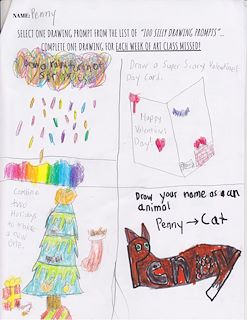 NAME: Penny
SELECT ONE DRAWING PROMPT FROM THE LIST OF "100 SILLY DRAWING PROMPTS"...
COMPLETE ONE DRAWING FOR EACH WEEK OF ART CLASS MISSED!
Draw a rain
of
Draw a Super Scary Valentine's
Day Card.
Happy
Valentines
Day!
Combine
two
Holidays
to make
a new
one.
Draw your name as an
animal
Penny → Cat
Penny